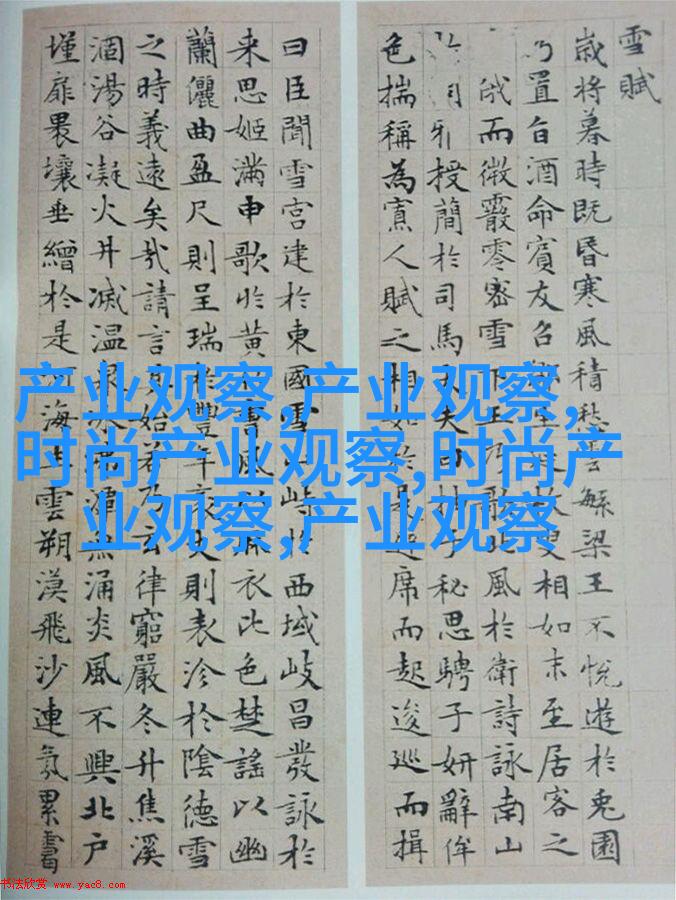 雪賦
歲將暮時既昏寒風積愁雲繁梁王不悅遊於兔園
乃置旨酒命賓友召相如末至居客之
俄而微霰零密雪下王乃歌北風於衛詩詠南山
授簡於司馬大夫曰抽子秘思騁子妍辭侔
色揣稱為寡人賦之相如於是避席而起逡巡而揖
曰臣聞雪宮建於東國雪山峙於西域岐昌發詠於
来思姬滿申歌於黃衣比色楚謠以幽
蘭儷曲盈尺則呈瑞於豐年袤丈則表沴於陰德雪
之時義遠矣哉請言其始若乃玄律窮嚴冬升焦溪
涸湯谷凝火井滅温泉冰無涌炎風不興北户
墐扉裸壤垂繒於是河海生雲朔漠飛沙連氛累靄
产业观察,产业观察,
时尚产业观察,时尚产
业观察,产业观察
书法欣赏 www.yac8.com